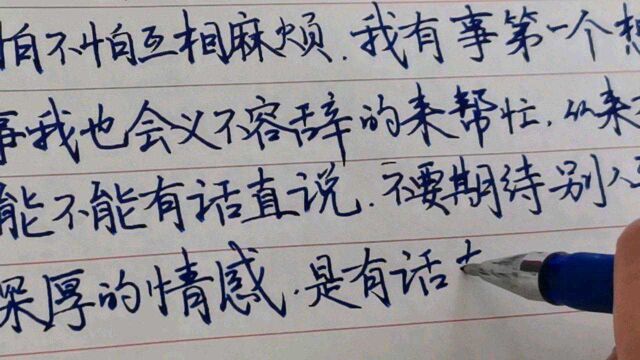 怕不怕互相麻烦.我有事第一个想
事我也会义不容辞的来帮忙,从来
能不能有话直说.不要期待别人
深厚的情感.是有话